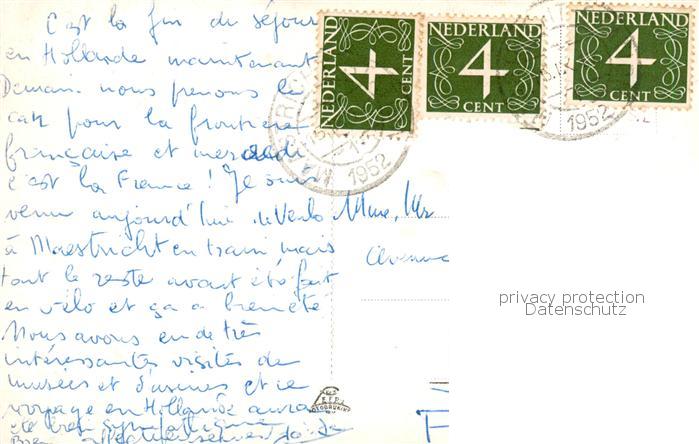 C'est la fin du séjour
en Hollande maintenant
Demain nous prenons le
car pour la frontière
française et mercredi
c'est la France ! Je suis
venu aujourd'hui de Venlo
à Maestricht en train, mais
tout le reste avait été fait
en vélo et ça a bien été
Nous avons eu de très
intéressantes visites de
musées et d'usines et ce
voyage en Hollande aura
été très sympathique
Bien affectueusement
NEDERLAND
4
CENT
NEDERLAND
4
CENT
NEDERLAND
4
CENT
1952
1952
Mme, Mr
Avenue
privacy protection
Datenschutz
F